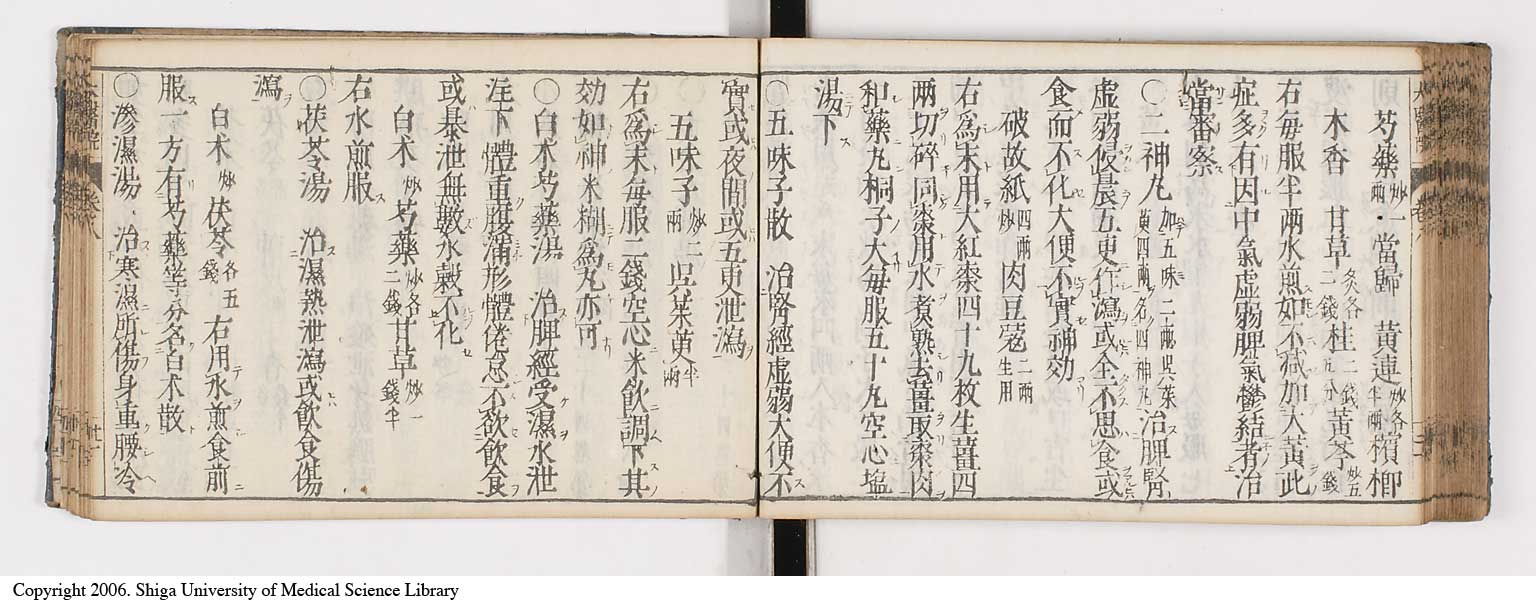 芍藥炒一兩當歸 黃連炒各半兩檳榔
木香 甘草炙各二錢桂二錢五分黃芩炒五錢
右每服半兩水煎如不減加大黃此
症多有因中氣虛弱脾氣鬱結者治
當審察
○二神丸加五味二兩吳茱萸四兩名四神丸治脾腎
虛弱侵晨五更作瀉或全不思食或
食而不化大便不實神効
破故紙四兩炒肉豆蔻二兩生用
右為末用大紅棗四十九枚生薑四
兩切碎同棗用水煮熟去薑取棗肉
和藥丸桐子大每服五十丸空心塩
湯下
○五味子散 治腎經虛弱大便不
實或夜間或五更泄瀉
五味子炒二兩吳茱萸半兩
右為末每服二錢空心米飲調下其
効如神米糊為丸亦可
○白术芍藥湯 治脾經受濕水泄
注下體重腹滿形體倦怠不欲飲食
或暴泄無數水穀不化
白术炒芍藥炒各二錢甘草炒一錢半
右水煎服
○茯苓湯 治濕熱泄瀉或飲食傷
瀉
白术炒茯苓各五錢右用水煎食前
服一方有芍藥等分名白术散
○滲濕湯 治寒濕所傷身重腰冷
Copyright 2006. Shiga University of Medical Science Library